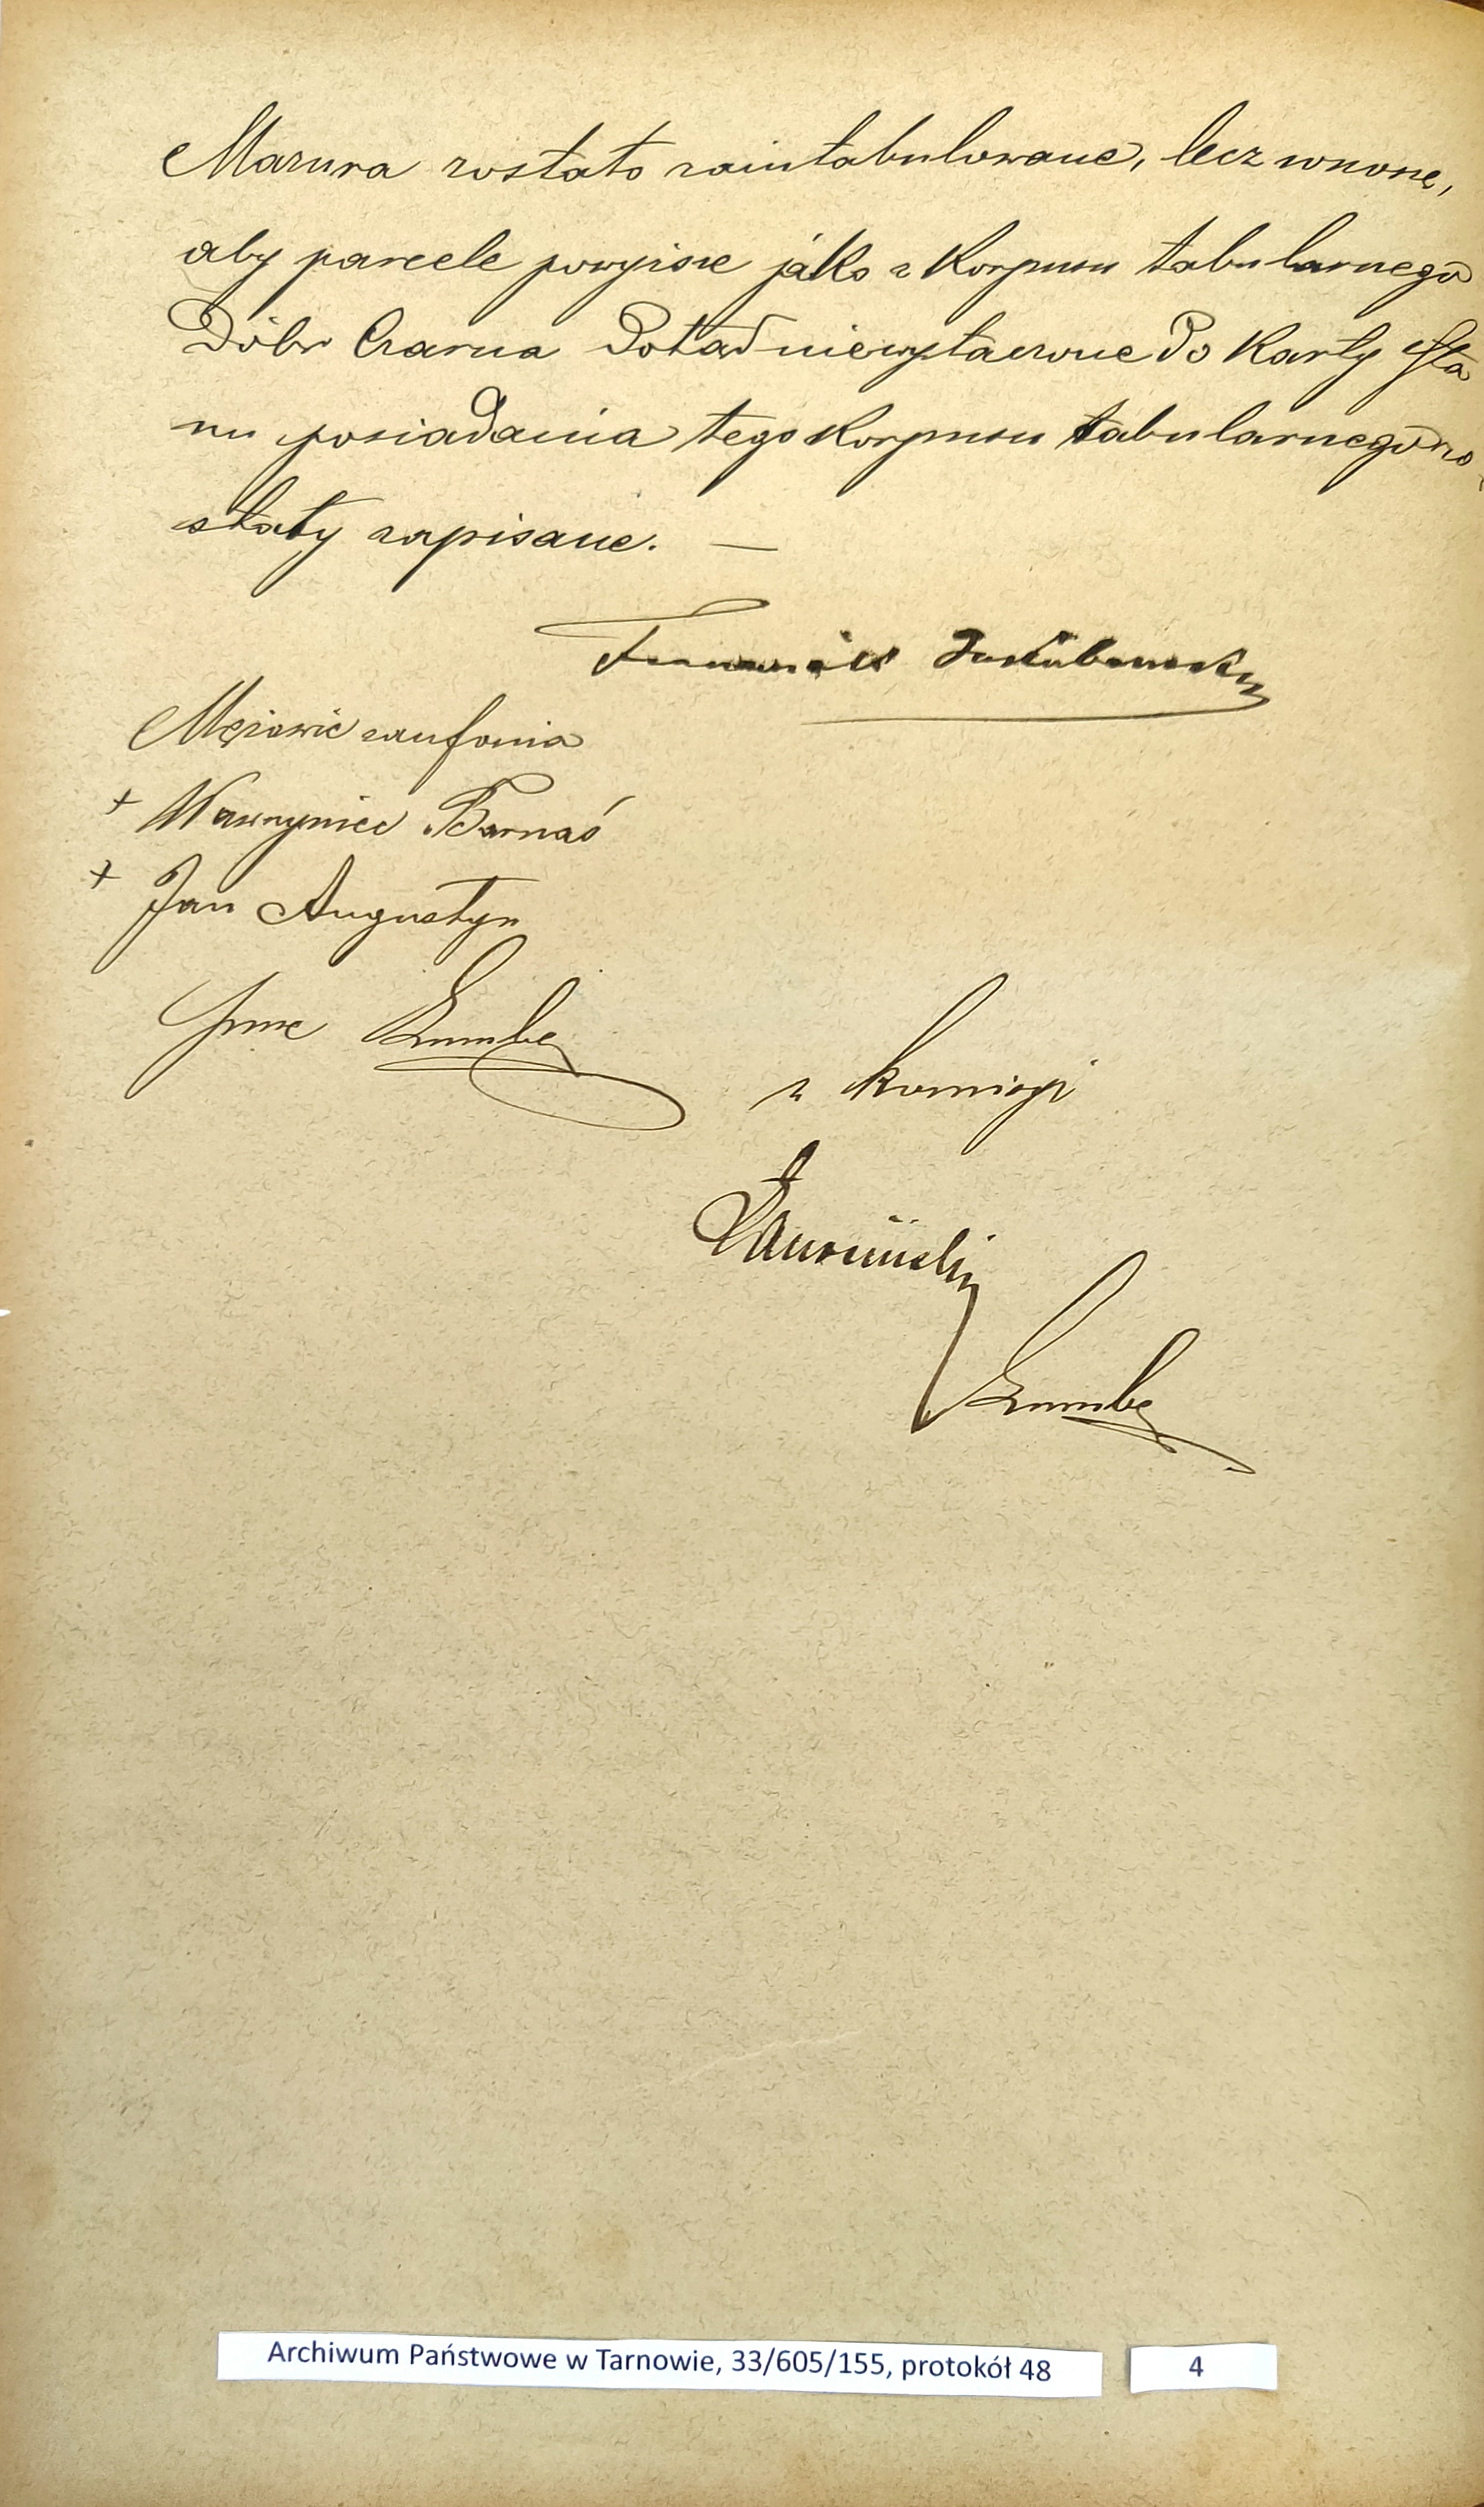 Mazura zostało zaintabulowane, lecz wnoszę,
aby parcele powyższe jako z Korpusu tabularnego
Dóbr Czarna dotąd niewyłączone do Karty Sta
nu posiadania tego Korpusu tabularnego zo
stały zapisane. —
Franciszek Jakubowski
Mężowie zaufania
+ Wawrzyniec Barnaś
+ Jan Augustyn
z komisyi
Archiwum Państwowe w Tarnowie, 33/605/155, protokół 48
4